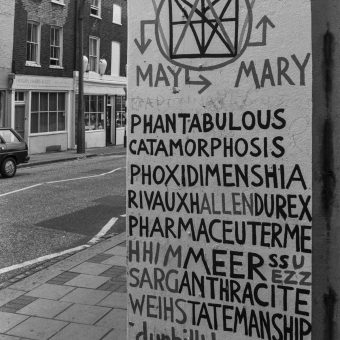 MAY MARY
PHANTABULOUS
CATAMORPHOSIS
PHOXIDIMENSHIA
RIVAUXHALLENDUREX
PHARMACEUTERME
HHIMMEERSSU
EZZ
SARGANTHRACITE
WEIHSTATEMANSHIP